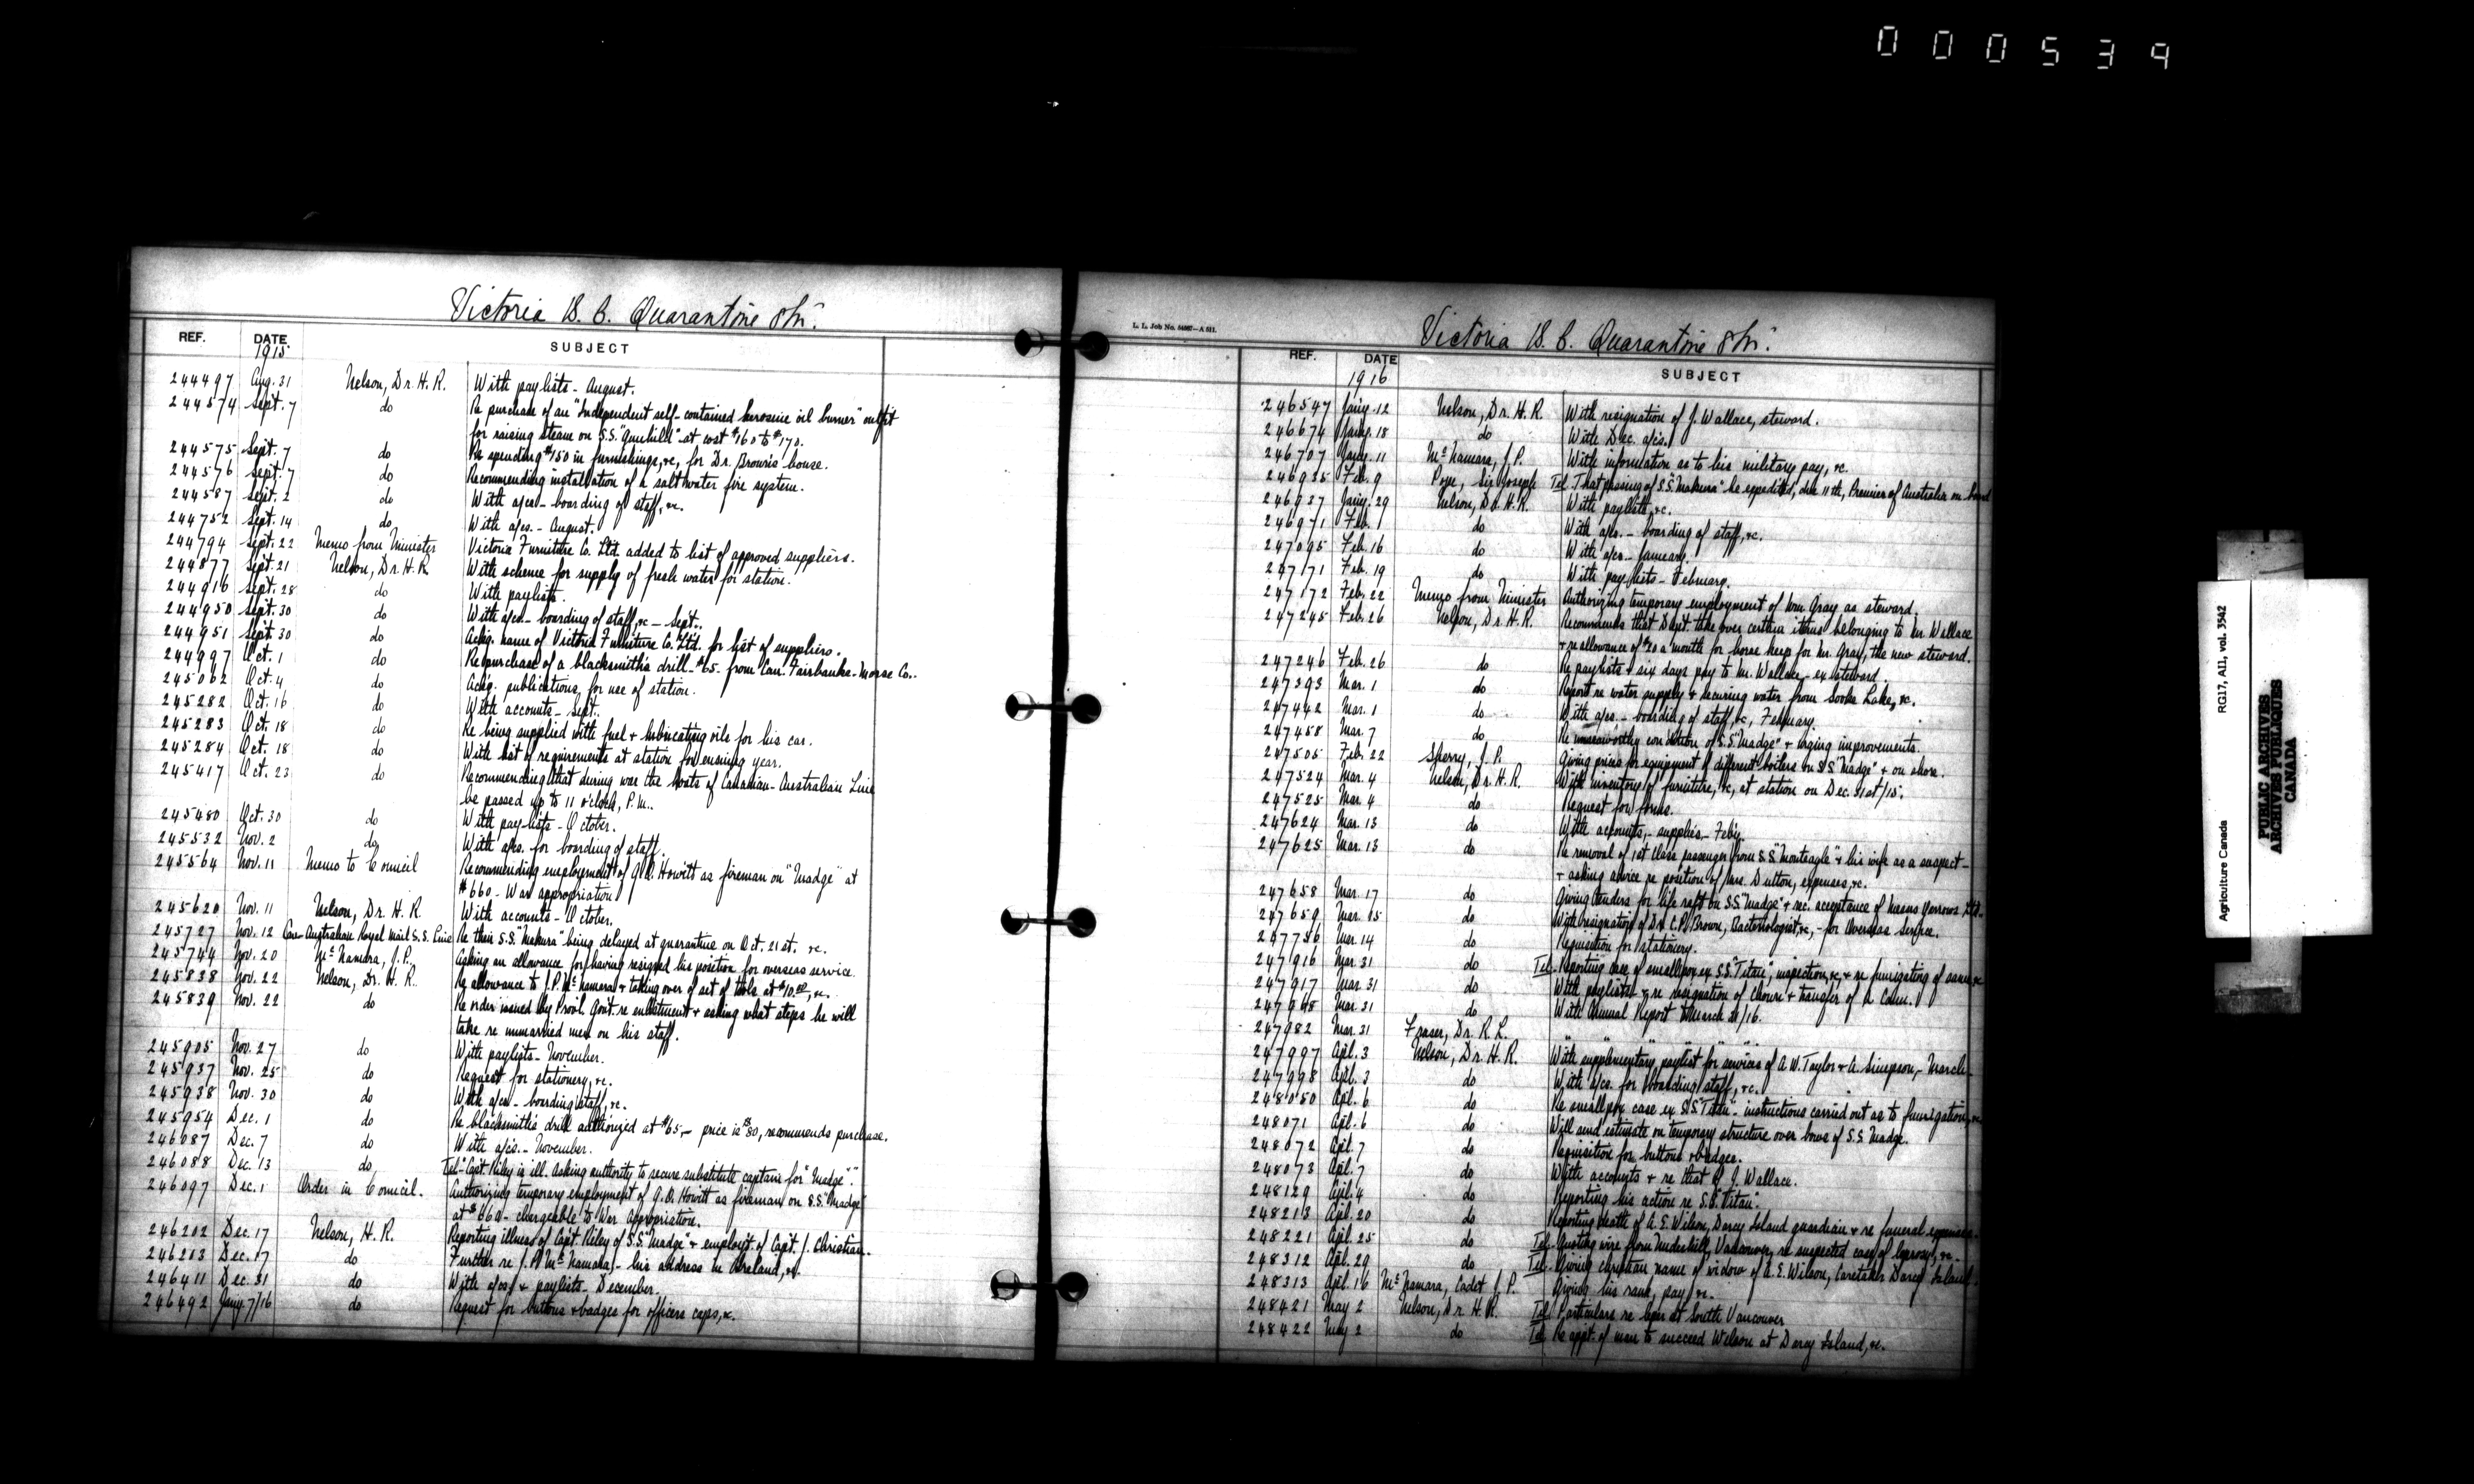 000539
Victoria B. C. Quarantine Stn.
REF. DATE SUBJECT
1915
244497 Aug. 31 Nelson, Dr. H. R. With paylists - August.
244574 Sept. 7 do Re purchase of an "Independent self-contained kerosine oil burner" outfit
for raising steam on S.S. "Gunhild" at cost $160 to $170.
244575 Sept. 7 do Re spending $150 in furnishings, &c, for Dr. Brown's house.
244576 Sept. 7 do Recommending installation of a salt water fire system.
244587 Sept. 2 do With a/cs - boarding of staff, &c.
244752 Sept. 14 do With a/cs. - August.
244794 Sept. 22 Memo from Minister Victoria Furniture Co. Ltd. added to list of approved suppliers.
244877 Sept. 21 Nelson, Dr. H. R. With scheme for supply of fresh water for station.
244916 Sept. 28 do With paylists.
244950 Sept. 30 do With a/cs - boarding of staff, &c - Sept.
244951 Sept. 30 do Ackg. name of Victoria Furniture Co. Ltd. for list of suppliers.
244997 Oct. 1 do Re purchase of a blacksmith's drill - $65 - from Can. Fairbanks-Morse Co.
245062 Oct. 4 do Ackg. publications for use of station.
245282 Oct. 16 do With accounts - Sept.
245283 Oct. 18 do Re being supplied with fuel + lubricating oils for his car.
245284 Oct. 18 do With list of requirements at station for ensuing year.
245417 Oct. 23 do Recommending that during war the boats of Canadian-Australian Line
be passed up to 11 o'clock, P.M.
245480 Oct. 30 do With pay-lists - October.
245532 Nov. 2 do With a/cs. for boarding of staff.
245564 Nov. 11 Memo to Council Recommending employment of G. O. Howitt as fireman on "Madge" at
$660 - War appropriation
245620 Nov. 11 Nelson, Dr. H. R. With accounts - October.
245727 Nov. 12 Can-Australian Royal Mail S.S. Line Re their S.S. "Makura" being delayed at quarantine on Oct. 21st. &c.
245744 Nov. 20 McNamara, J. P. Asking an allowance for having resigned his position for overseas service.
245838 Nov. 22 Nelson, Dr. H. R. Re allowance to J. P. McNamara + taking over of set of tools at $10.00, &c.
245839 Nov. 22 do Re order issued by Provl. Govt. re enlistment + asking what steps he will
take re unmarried men on his staff.
245905 Nov. 27 do With paylists - November.
245937 Nov. 25 do Request for stationery, &c.
245938 Nov. 30 do With a/cs - boarding staff, &c.
245954 Dec. 1 do Re blacksmith's drill authorized at $65 - price is $80, recommends purchase.
246087 Dec. 7 do With a/cs. - November.
246088 Dec. 13 do Tel - Capt. Riley is ill. Asking authority to secure substitute captain for "Madge".
246097 Dec. 1 Order in Council. Authorizing temporary employment of G. O. Howitt as fireman on S.S. "Madge"
at $660 - chargeable to War Appropriation.
246202 Dec. 17 Nelson, H. R. Reporting illness of Capt. Riley of S.S. "Madge" + employt. of Capt. J. Christian.
246203 Dec. 17 do Further re J. P. McNamara, - his address in Ireland, &c.
246411 Dec. 31 do With a/cs + paylists - December.
246492 Jany 7/16 do Request for buttons + badges for officers caps, &c.
L. L. Job No. -A 511.
Victoria B. C. Quarantine Stn.
REF. DATE SUBJECT
1916
246547 Jany. 12 Nelson, Dr. H. R. With resignation of J. Wallace, steward.
246674 Jany. 18 do With Dec. a/cs.
246707 Jany. 11 McNamara, J. P. With information as to his military pay, &c.
246935 Feb. 9 Pope, Sir Joseph Tel. That passing of S.S. "Makura" be expedited, due 11th, Premier of Australia on board
246937 Jany. 29 Nelson, Dr. H. R. With paylists, &c.
246971 Feb. 1 do With a/cs. - boarding of staff, &c.
247095 Feb. 16 do With a/cs - January.
247171 Feb. 19 do With pay lists - February.
247172 Feb. 22 Memo from Minister Authorizing temporary employment of Wm Gray as steward.
247245 Feb. 26 Nelson, Dr. H. R. Recommends that Dept. take over certain items belonging to Mr. Wallace
+ re allowance of $20 a month for horse keep for Mr. Gray, the new steward.
247246 Feb. 26 do Re paylists + six days pay to Mr. Wallace, ex-steward.
247393 Mar. 1 do Report re water supply + securing water from Sooke Lake, &c.
247442 Mar. 1 do With a/cs. - boarding of staff, &c, February.
247458 Mar. 7 do Re unseaworthy condition of S.S. "Madge" + urging improvements.
247505 Feb. 22 Sherry, J. P. Giving prices for equipment of different boilers on S.S. "Madge" + on shore.
247524 Mar. 4 Nelson, Dr. H. R. With inventory of furniture, &c, at station on Dec. 31st/15.
247525 Mar. 4 do Request for forms.
247624 Mar. 13 do With accounts, - supplies - Feb'y
247625 Mar. 13 do Re removal of 1st class passenger from S.S. "Monteagle" + his wife as a suspect -
+ asking advice re position of Mrs. Dutton, expenses, &c.
247658 Mar. 17 do Giving tenders for life raft on S.S. "Madge" + rec. acceptance of Messrs Yarrows Ltd.
247659 Mar. 15 do With resignation of Dr. C. P. Brown, Bacteriologist, &c, - for Overseas Service.
247756 Mar. 14 do Requisition for stationery.
247916 Mar. 31 do Tel - Reporting case of smallpox ex S.S. "Titan", inspection, &c, + re fumigating of same, &c
247917 Mar. 31 do With paylists + re resignation of Chowne + transfer of A Colm.
247948 Mar. 31 do With Annual Report March 31/16.
247982 Mar. 31 Fraser, Dr. R. L. " " " "
247997 Apl. 3 Nelson, Dr. H. R. With supplementary paylist for services of A. W. Taylor + A. Simpson, - March -
247998 Apl. 3 do With a/cs. for boarding staff, &c.
248050 Apl. 6 do Re smallpox case ex S.S. "Titan" - instructions carried out as to fumigation, &c.
248071 Apl. 6 do Will send estimate on temporary structure over bows of S.S Madge.
248072 Apl. 7 do Requisition for buttons + badges.
248073 Apl. 7 do With accounts + re that of J. Wallace.
248129 Apl. 4 do Reporting his action re S.S. "Titan".
248213 Apl. 20 do Reporting death of A. E. Wilson, Darcy Island guardian + re funeral expenses.
248221 Apl. 25 do Tel - Quoting wire from Underhill, Vancouver, re suspected case of leprosy, &c -
248312 Apl. 29 do Tel - Giving christian name of widow of A. E. Wilson, Caretaker Darcy Island.
248313 Apl. 16 McNamara, Cadet J. P. Giving his rank, pay, &c.
248421 May 2 Nelson, Dr. H. R. Tel. Particulars re leper at South Vancouver
248422 May 2 do Tel Re appt. of man to succeed Wilson at Darcy Island, &c.
Agriculture Canada RG17, A11, vol. 3542
PUBLIC ARCHIVES
ARCHIVES PUBLIQUES
CANADA